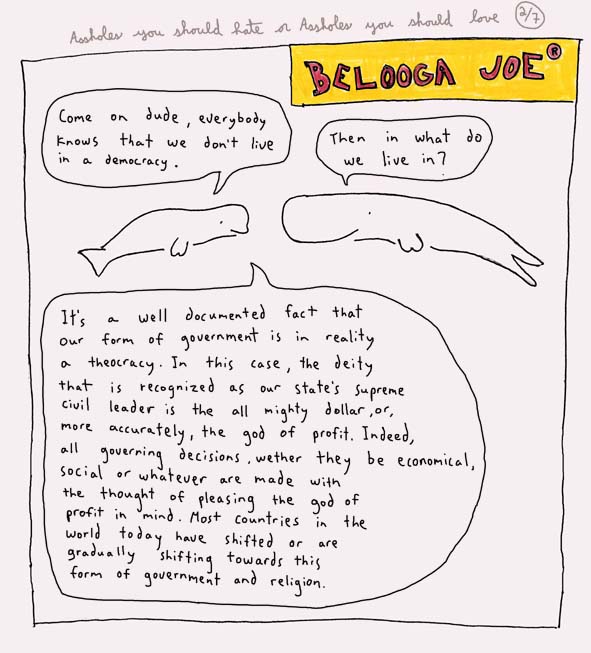 Assholes you should hate or Assholes you should love 2/7
BELOOGA JOE®
Come on dude, everybody
knows that we don't live
in a democracy.
Then in what do
we live in?
It's a well documented fact that
our form of government is in reality
a theocracy. In this case, the deity
that is recognized as our state's supreme
civil leader is the all mighty dollar, or,
more accurately, the god of profit. Indeed,
all governing decisions, wether they be economical,
social or whatever are made with
the thought of pleasing the god of
profit in mind. Most countries in the
world today have shifted or are
gradually shifting towards this
form of government and religion.